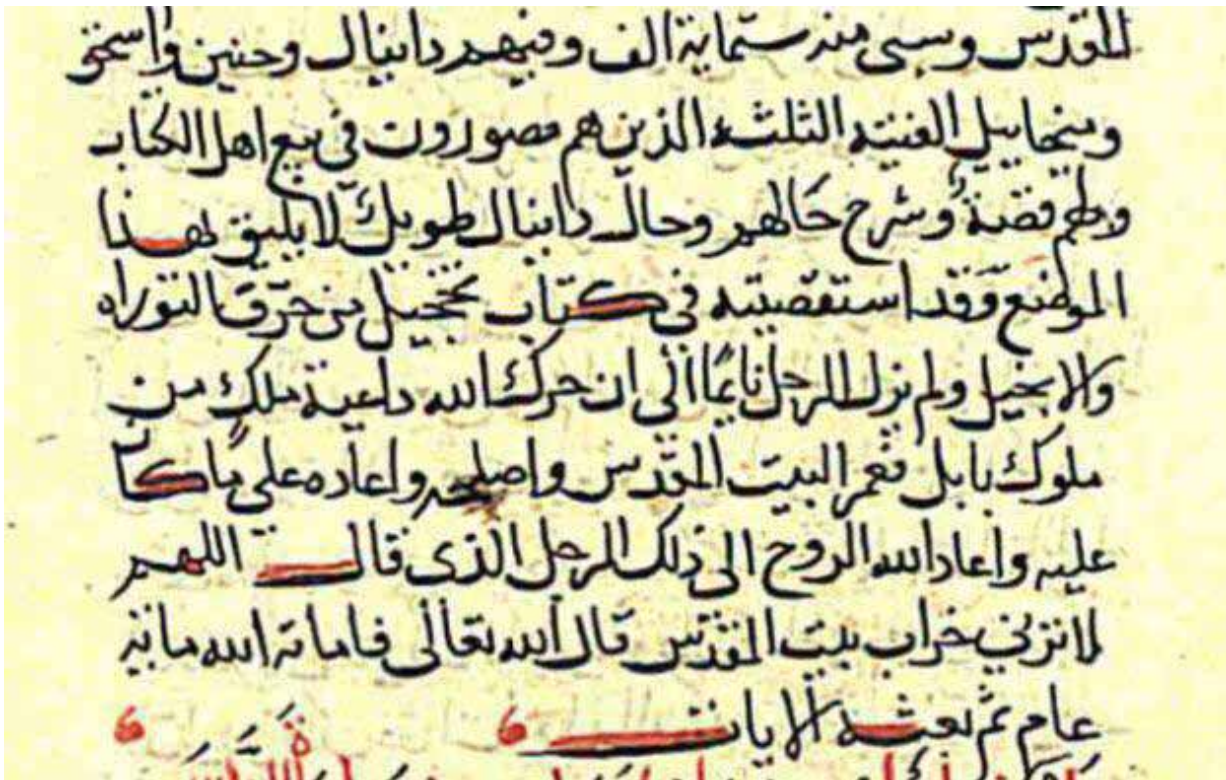 المقدس وسبى منه ستماية الف وفيهم دانيال وحنين واسحق
وميخاييل الفتيه الثلثه الذين هم مصورون في بيع اهل الكتاب
ولهم قصة وشرح حالهم وحال دانيال طويل لا يليق بهذا
الموضع وقد استقصيته في كتاب تخجيل من حرف التوراه
والانجيل ولم يزل الرجل نايمًا الى ان حرك الله داعية ملك من
ملوك بابل فعمر البيت المقدس واصلحه واعاده على ما كان
عليه واعاد الله الروح الى ذلك الرجل الذي قال اللهم
لا ترني خراب بيت المقدس قال الله تعالى فاماته الله ماية
عام ثم بعثه الايات